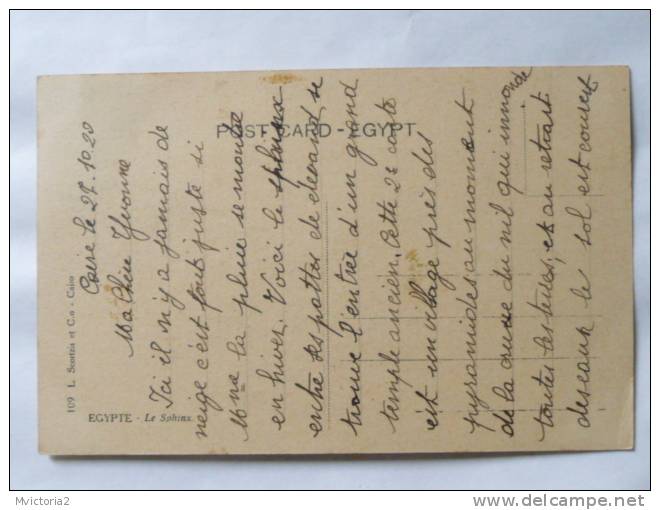 Caire le 27.10.20
Ma Chère Yvonne
Ici il n'y a jamais de
neige c'est tout juste si
la pluie se montre
en hiver. Voici le sphinx
entre ses pattes de devand se
trouve l'entrée d'un grand
temple ancien. Cette 2e carte
est un village près des
pyramides au moment
de la crue du nil qui innonde
toutes les terres, et au retrait
des eaux le sol est couvert
POST CARD - EGYPT
109 L. Scortzis et C.o - Cairo
EGYPTE - Le Sphinx.
Mvictoria2
http://www.delcampe.net